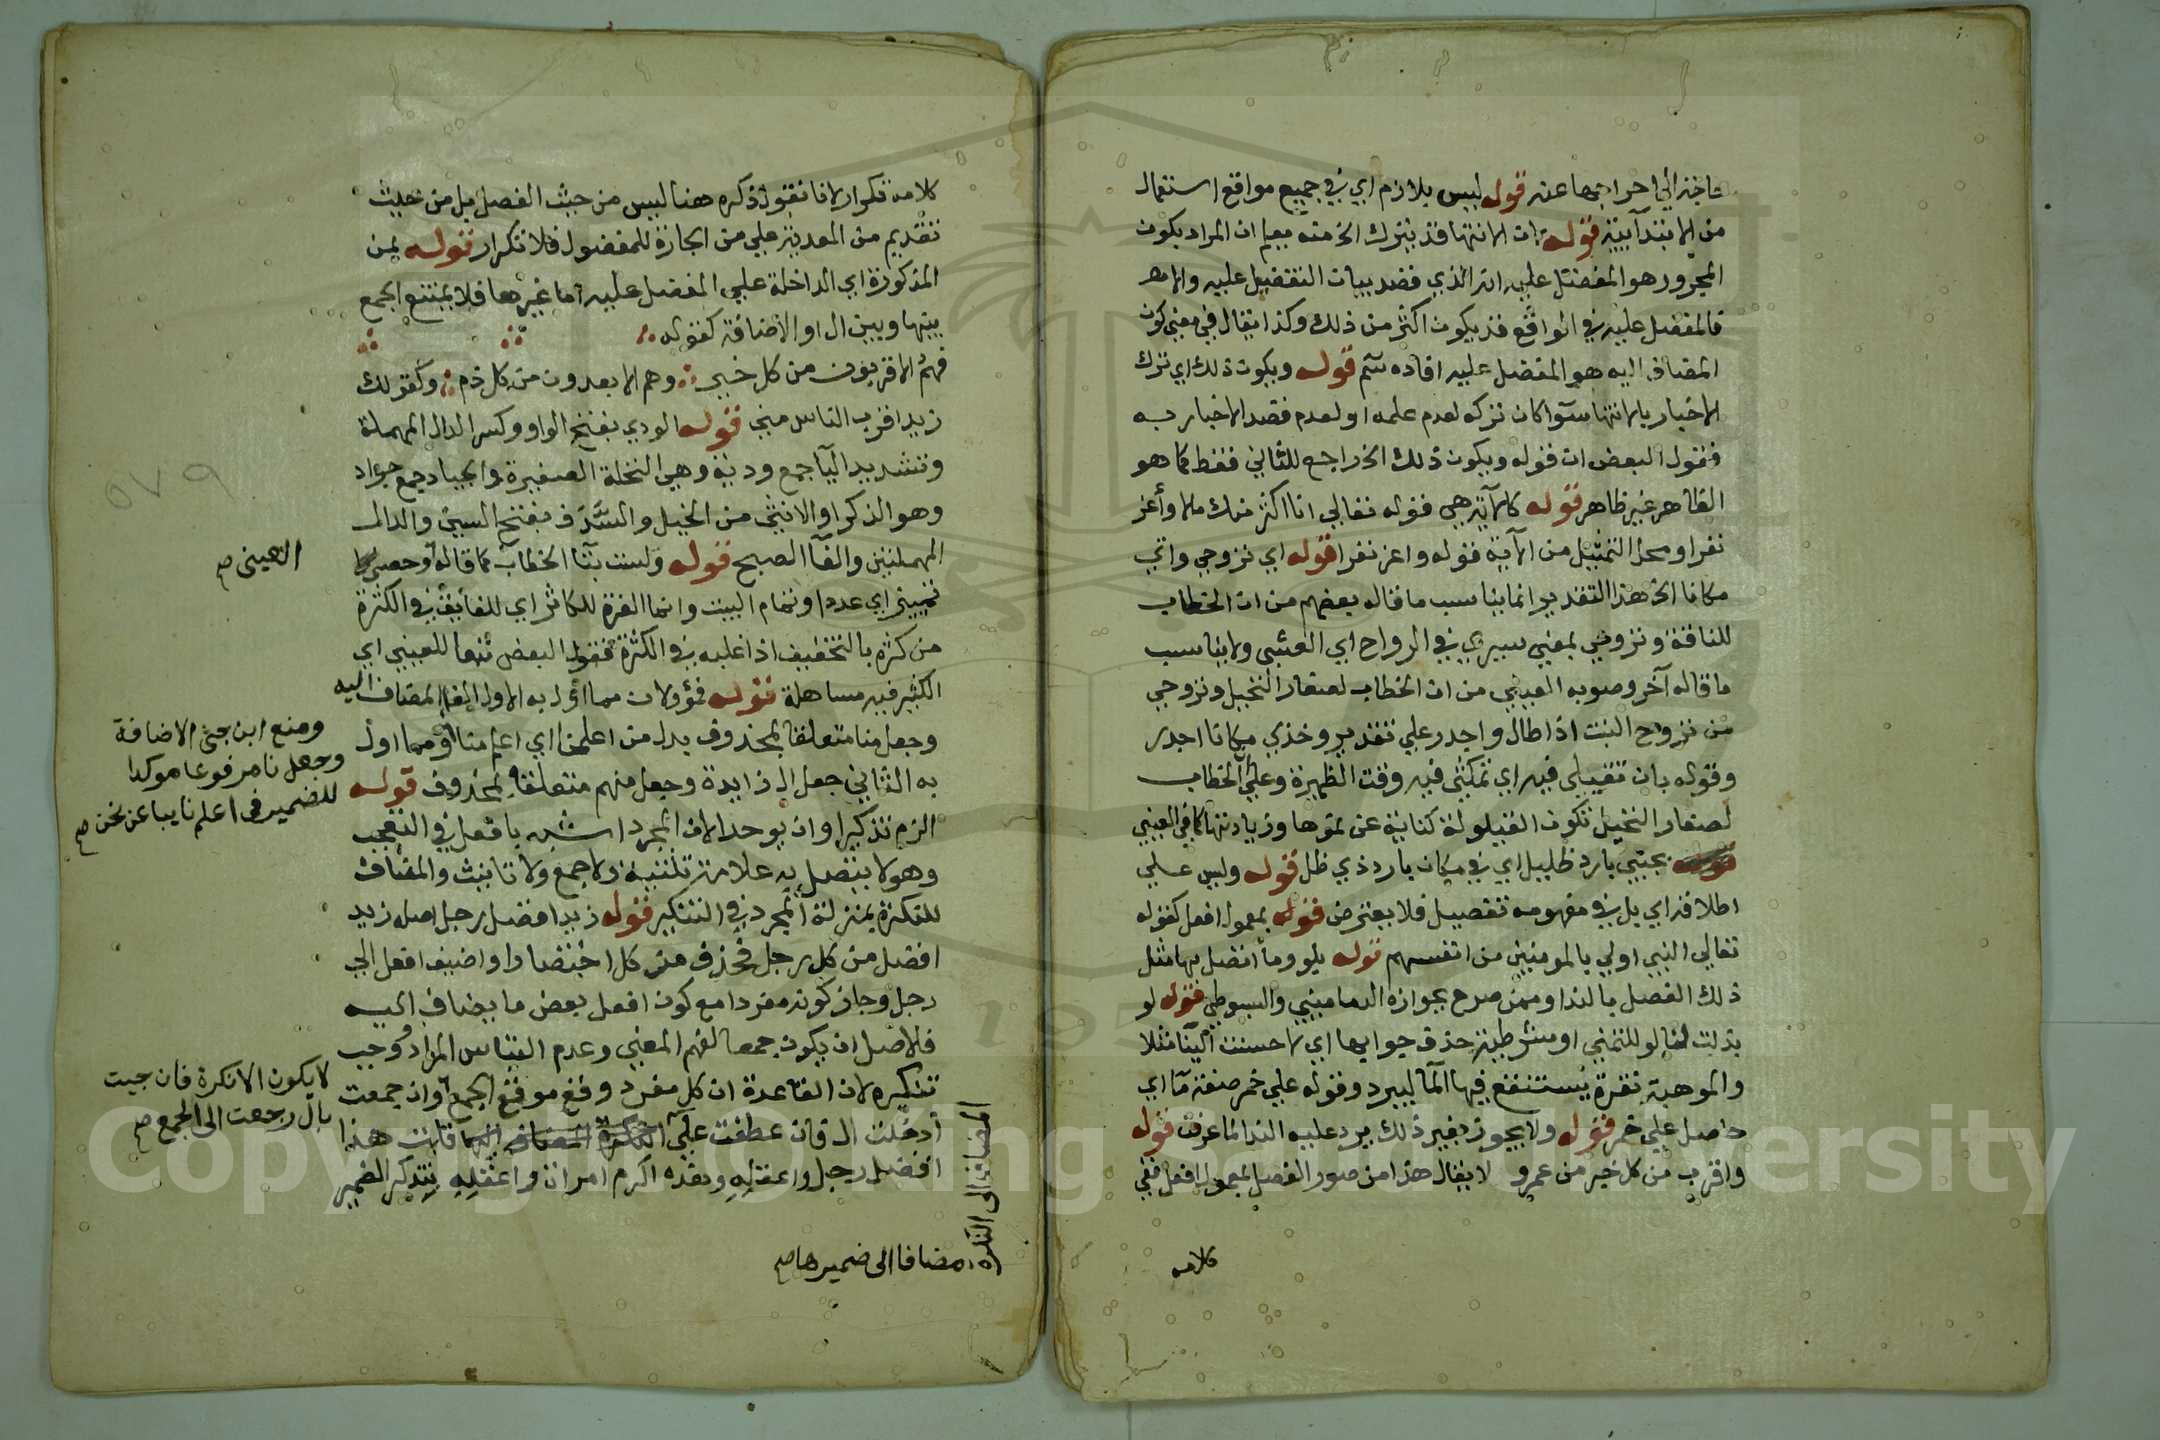 حاجة الي اخراجها عنه قوله ليس بلازم اي في جميع مواقع استعمال
من الابتدآيية قوله ان الانتها قد يترك الخ منه يعلم ان المراد بكون
المجرور هو المفضل عليه انه الذي قصد بيان التفضيل عليه والا
فالمفضل عليه في الواقع قد يكون اكثر من ذلك وكذا يقال في معني كون
المضاف اليه هو المفضل عليه افاده سم قوله ويكون ذلك اي ترك
الاخبار بالانتها سوآ كان تركه لعدم علمه او لعدم قصد الاخبار به
فقول البعض ان قوله ويكون ذلك الخ راجع للثاني فقط كما هو
الظاهر غير ظاهر قوله كالآية هي قوله تعالي انا اكثر منك مالا وأعز
نفرا ومحل التمثيل من الآية قوله واعز نفرا قوله اي تروحي واتي
مكانا الخ هذا التقدير انما يناسب ما قاله بعضهم من ان الخطاب
للناقة وتروحي بمعني سيري في الرواح اي العشي ولا يناسب
ما قاله آخر وصوبه العيني من ان الخطاب لصغار النخيل وتروحي
من تروح النبت اذا طال واجدر علي تقدير وخذي مكانا اجدر
وقوله بان تقيلي فيه اي تمكثي فيه وقت الظهيرة وعلي الخطاب
لصغار النخيل تكون القيلولة كناية عن نموها وزيادتها كما في العيني
قوله بجنبي بارد ظليل اي في مكان بارد ذي ظل قوله وليس علي
اطلاقه اي بل في مفهومه تفصيل فلا يعترض قوله بمعمول افعل كقوله
تعالي النبي اولي بالمومنين من انفسهم قوله بلو وما اتصل بها مثل
ذلك الفصل بالندا وممن صرح بجوازه الدماميني والسيوطي قوله لو
بذلت لنا لو للتمني او شرطية حذف جوابها اي لاحسنت الينا مثلا
والموهبة نقرة يستنقع فيها المآ ليبرد وقوله علي خمر صفة مآ اي
حاصل علي خمر قوله ولا يجوز بغير ذلك يرد عليه الندا لما عرفت قوله
واقرب من كل خير من عمرو لا يقال هذا من صور الفصل بمعمول افعل ففي
كلامه
كلامه تكرار لانا نقول ذكره هنا ليس من حيث الفصل بل من حيث
تقديم من المعدية علي من الجارة للمفضول فلا تكرار قوله بمن
المذكورة اي الداخلة علي المفضل عليه اما غيرها فلا يمتنع الجمع
بينها وبين ال او الاضافة كقوله
فهم الاقربون من كل خير وهم الابعدون من كل ذم وكقولك
زيد اقرب الناس مني قوله الودي بفتح الواو وكسر الدال المهملة
وتشديد اليآ جمع ودية وهي النخلة الصغيرة والجياد جمع جواد
وهو الذكر او الانثي من الخيل والسدف بفتح السين والدال
المهملتين والفآ الصبح قوله ولست بتا الخطاب كما قاله وحصي
العيني صح
تمييز اي عددا وتمام البيت وانما العزة للكاثر اي للفايق في الكثرة
من كثره بالتخفيف اذا غلبه في الكثرة فقول البعض تبعا للعيني اي
الكثير فيه مساهلة قوله فمؤولان مما اول به الاول الغا المضاف اليه
ومنع ابن جني الاضافة
وجعل نا مرفوعا موكدا
للضمير في اعلم نايبا عن نحن صح
وجعل منا متعلقا بمحذوف بدل من اعلمنا اي اعلم منا ومما اول
به الثاني جعل ال زايدة وجعل منهم متعلقا بمحذوف قوله
الزم تذكيرا وان يوحدا لان المجرد اشبه بافعل في التعجب
وهو لا يتصل به علامة تثنية ولا جمع ولا تانيث والمضاف
للنكرة بمنزلة المجرد في التنكير قوله زيد افضل رجل اصله زيد
افضل من كل رجل فحذف من كل اختصارا واضيف افعل الي
رجل وجاز كونه مفردا مع كون افعل بعض ما يضاف اليه
فالاصل ان يكون جمعا لفهم المعني وعدم التباس المراد ووجب
تنكيره لان القاعدة ان كل مفرد وقع موقع الجمع وان جمعت
لا يكون الا نكرة فان جيت
بال رجعت الى الجمع صح
أدخلت ال فان عطفت علي المضاف اليها قلت هذا
المضاف الى النكرة
مضافا الى ضميرها صح
افضل رجل واعقله وهذه اكرم امراة واعقله بتذكير الضمير
٥٧٩
Copyright © King Saud University